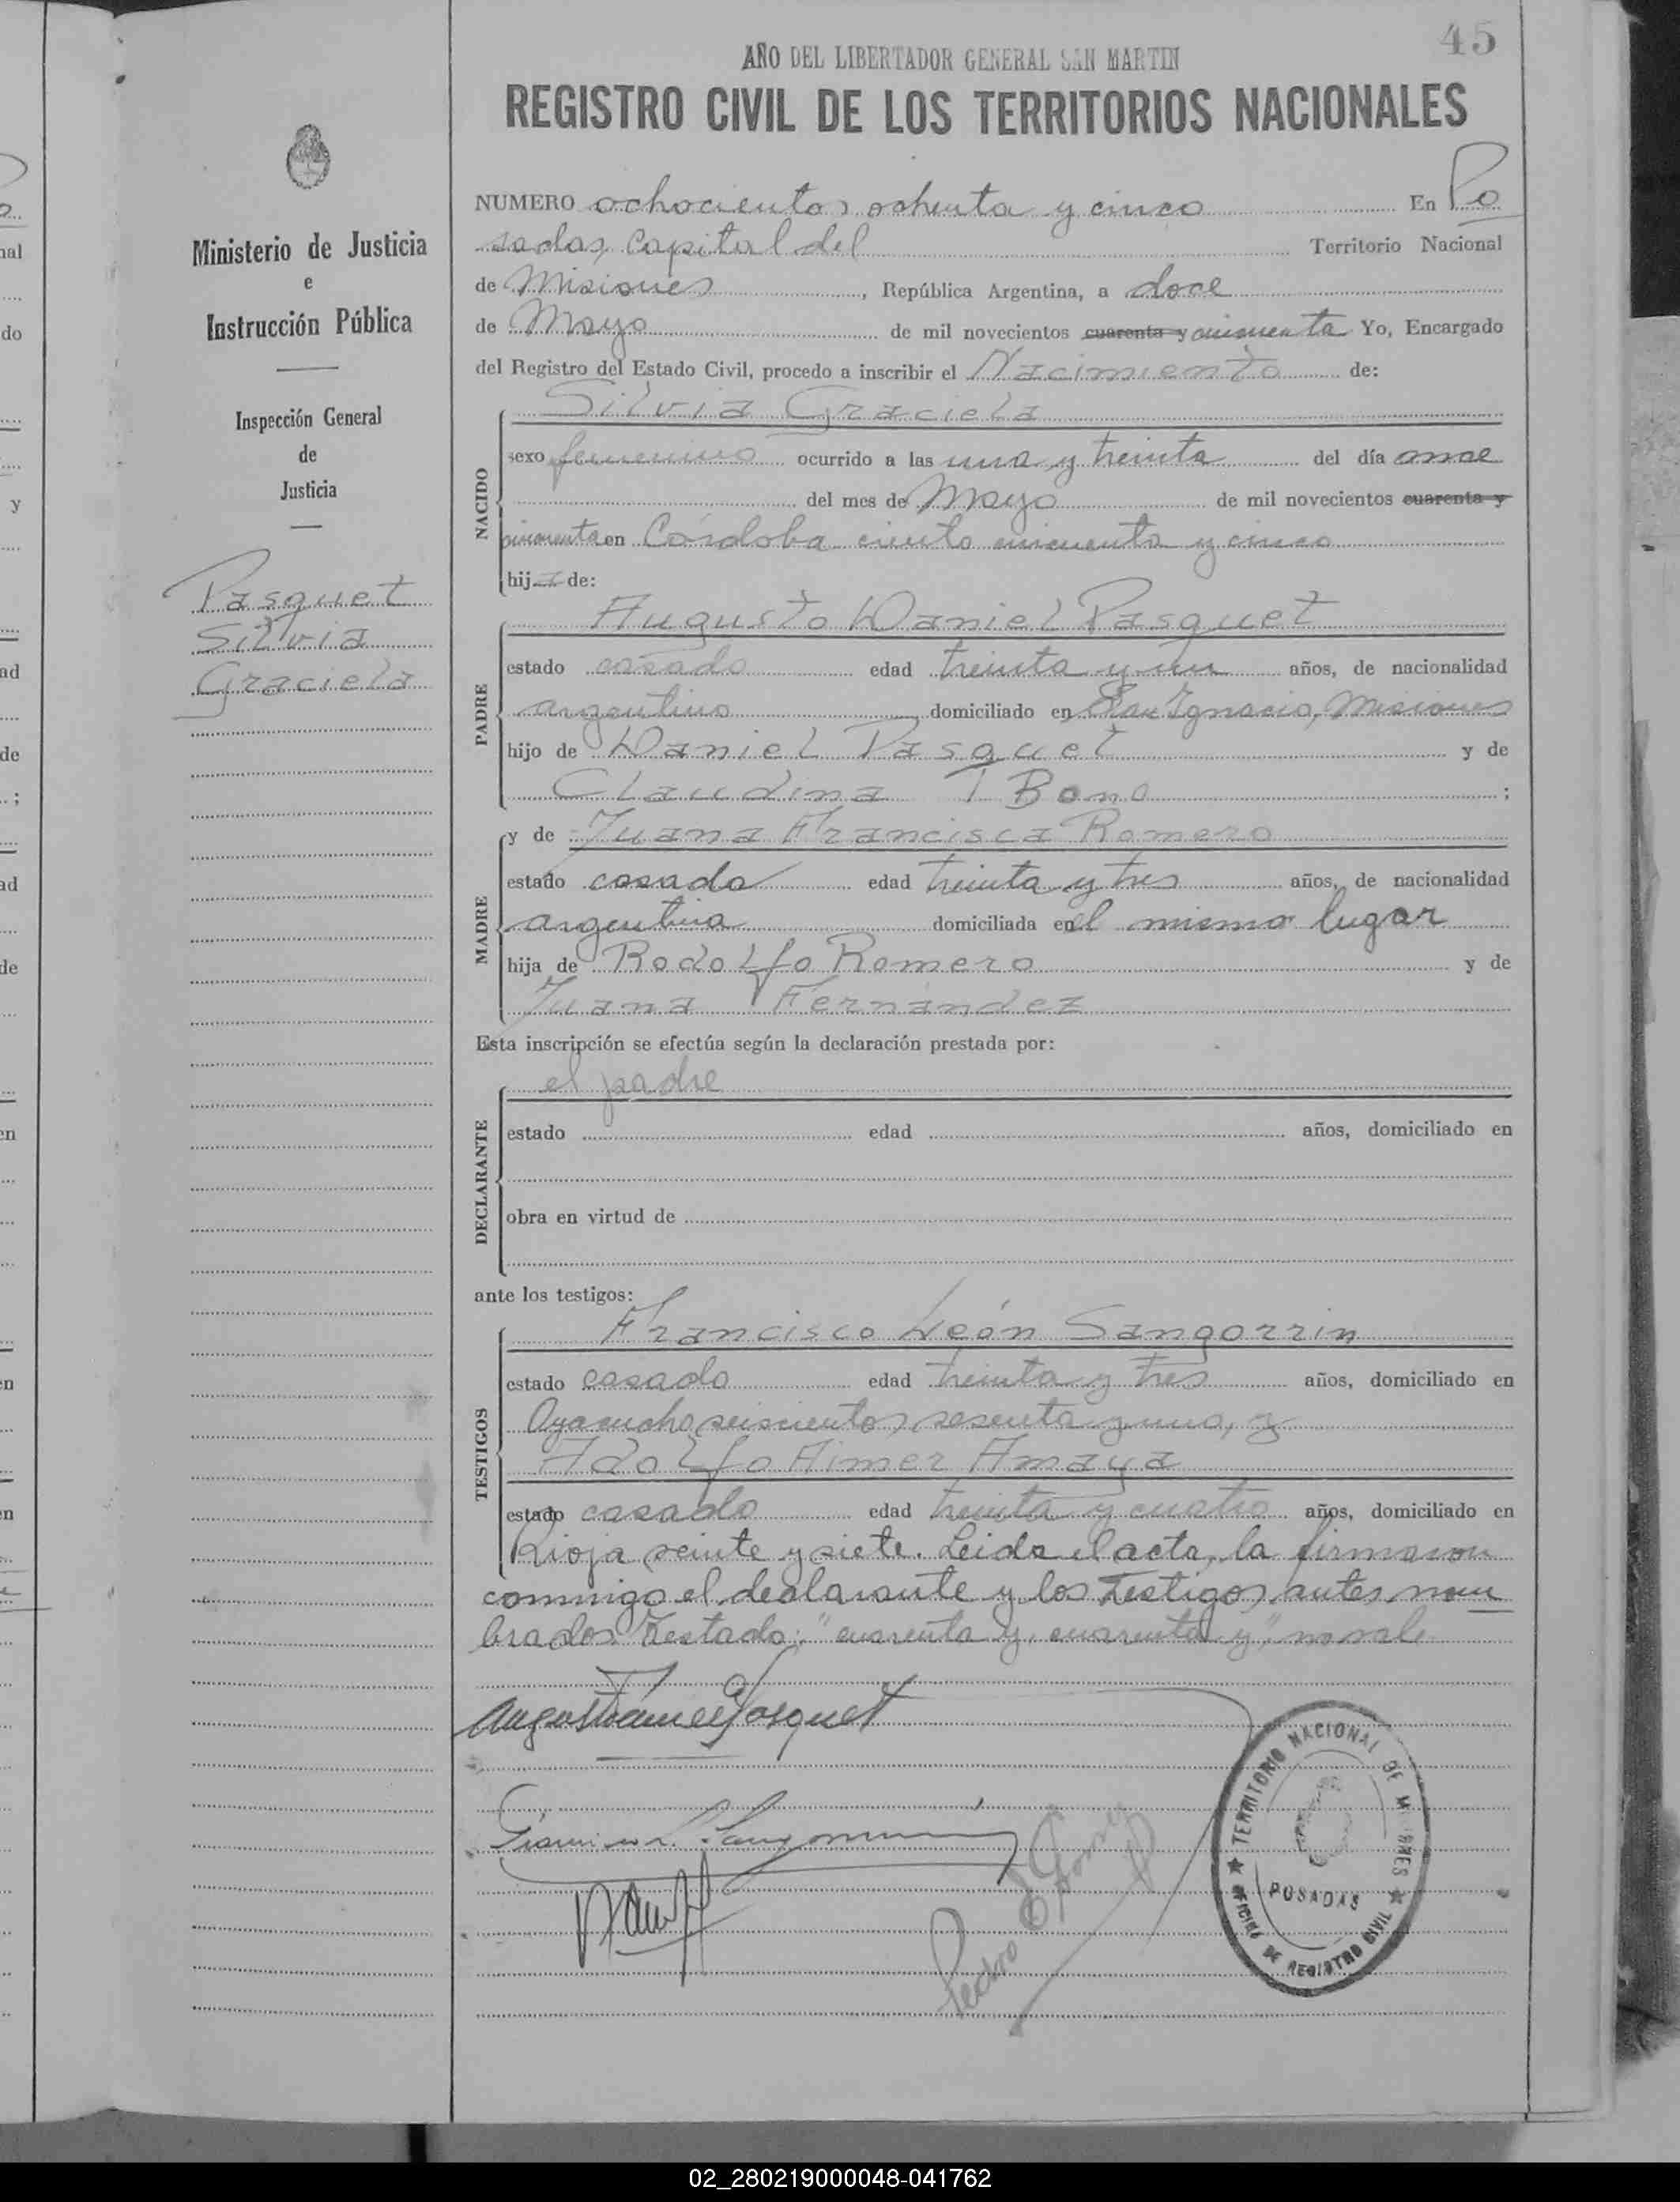 45
AÑO DEL LIBERTADOR GENERAL SAN MARTIN
REGISTRO CIVIL DE LOS TERRITORIOS NACIONALES
Ministerio de Justicia
e
Instrucción Pública
Inspección General
de
Justicia
Pasquet
Silvia
Graciela
NUMERO ochocientos ochenta y cinco En Po
sadas, Capital del Territorio Nacional
de Misiones, República Argentina, a doce
de Mayo de mil novecientos cuarenta y cincuenta Yo, Encargado
del Registro del Estado Civil, procedo a inscribir el Nacimiento de:
Silvia Graciela
NACIDO
sexo femenino ocurrido a las una y treinta del día once
del mes de Mayo de mil novecientos cuarenta y
cincuenta en Córdoba ciento cincuenta y cinco
hija de:
Augusto Daniel Pasquet
PADRE
estado casado edad treinta y un años, de nacionalidad
argentino domiciliado en San Ignacio, Misiones
hijo de Daniel Pasquet y de
Claudina T Bono ;
MADRE
y de Juana Francisca Romero
estado casada edad treinta y tres años, de nacionalidad
argentina domiciliada en el mismo lugar
hija de Rodolfo Romero y de
Juana Fernández
Esta inscripción se efectúa según la declaración prestada por:
el padre
DECLARANTE
estado edad años, domiciliado en
obra en virtud de
ante los testigos:
Francisco León Sangorrin
TESTIGOS
estado casado edad treinta y tres años, domiciliado en
Ayacucho seiscientos sesenta y uno, y
Adolfo Aimer Amaya
estado casado edad treinta y cuatro años, domiciliado en
Rioja veinte y siete. Leida el acta, la firmaron
conmigo el declarante y los testigos antes nom
brados. Testado: "cuarenta y, cuarenta y", no vale
Augusto Daniel Pasquet
TERRITORIO NACIONAL DE MISIONES
POSADAS
OFICINA DE REGISTRO CIVIL
02_280219000048-041762